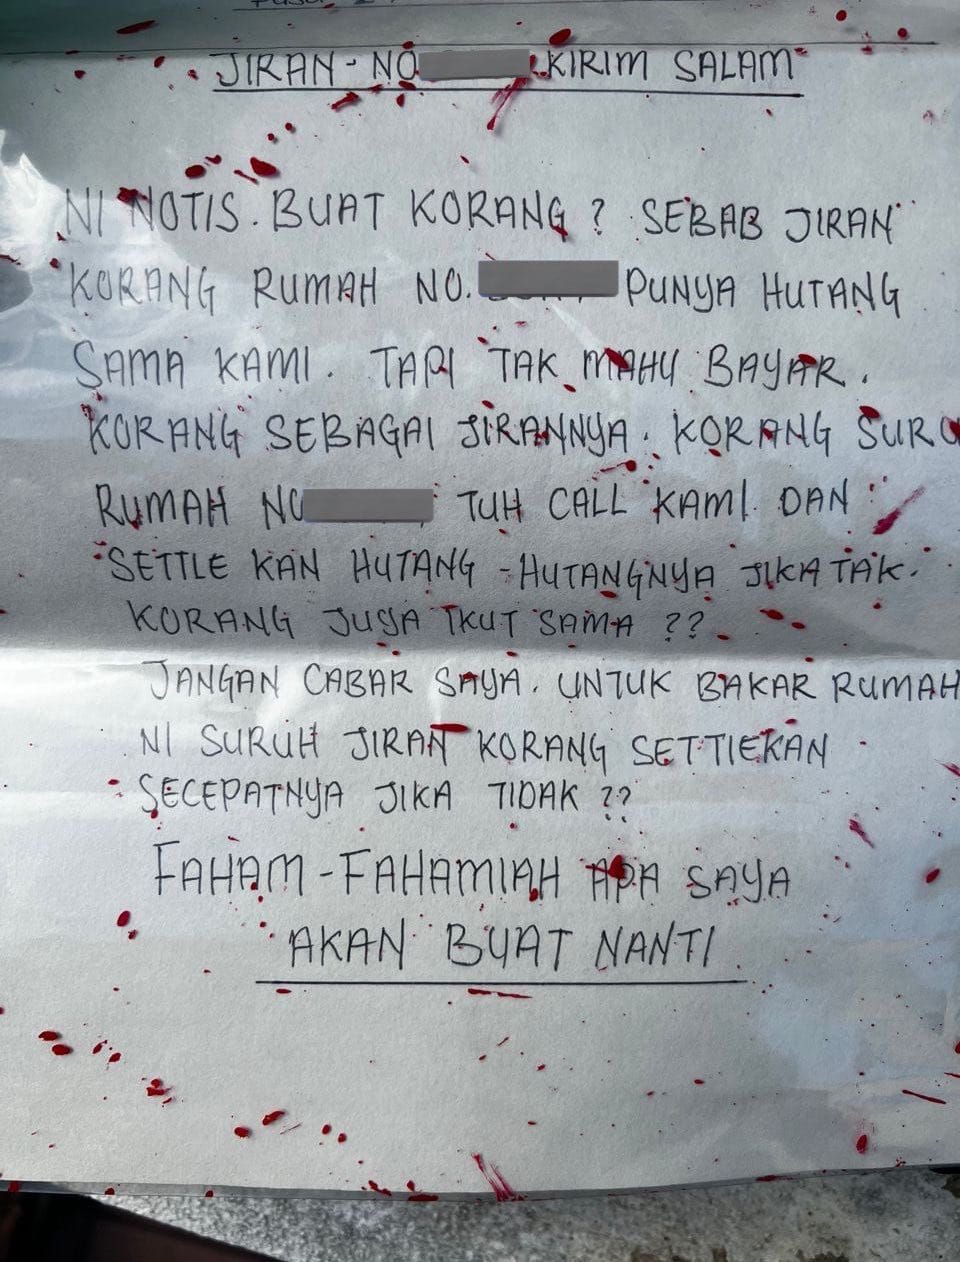 JIRAN - NO KIRIM SALAM
NI NOTIS. BUAT KORANG ? SEBAB JIRAN
KORANG RUMAH NO. PUNYA HUTANG
SAMA KAMI. TAPI TAK MAHU BAYAR.
KORANG SEBAGAI JIRANNYA. KORANG SURU
RUMAH NO TUH CALL KAMI DAN
SETTLE KAN HUTANG - HUTANGNYA JIKA TAK.
KORANG JUGA IKUT SAMA ??
JANGAN CABAR SAYA. UNTUK BAKAR RUMAH
NI SURUH JIRAN KORANG SETTLEKAN
SECEPATNYA JIKA TIDAK ??
FAHAM - FAHAMLAH APA SAYA
AKAN BUAT NANTI.